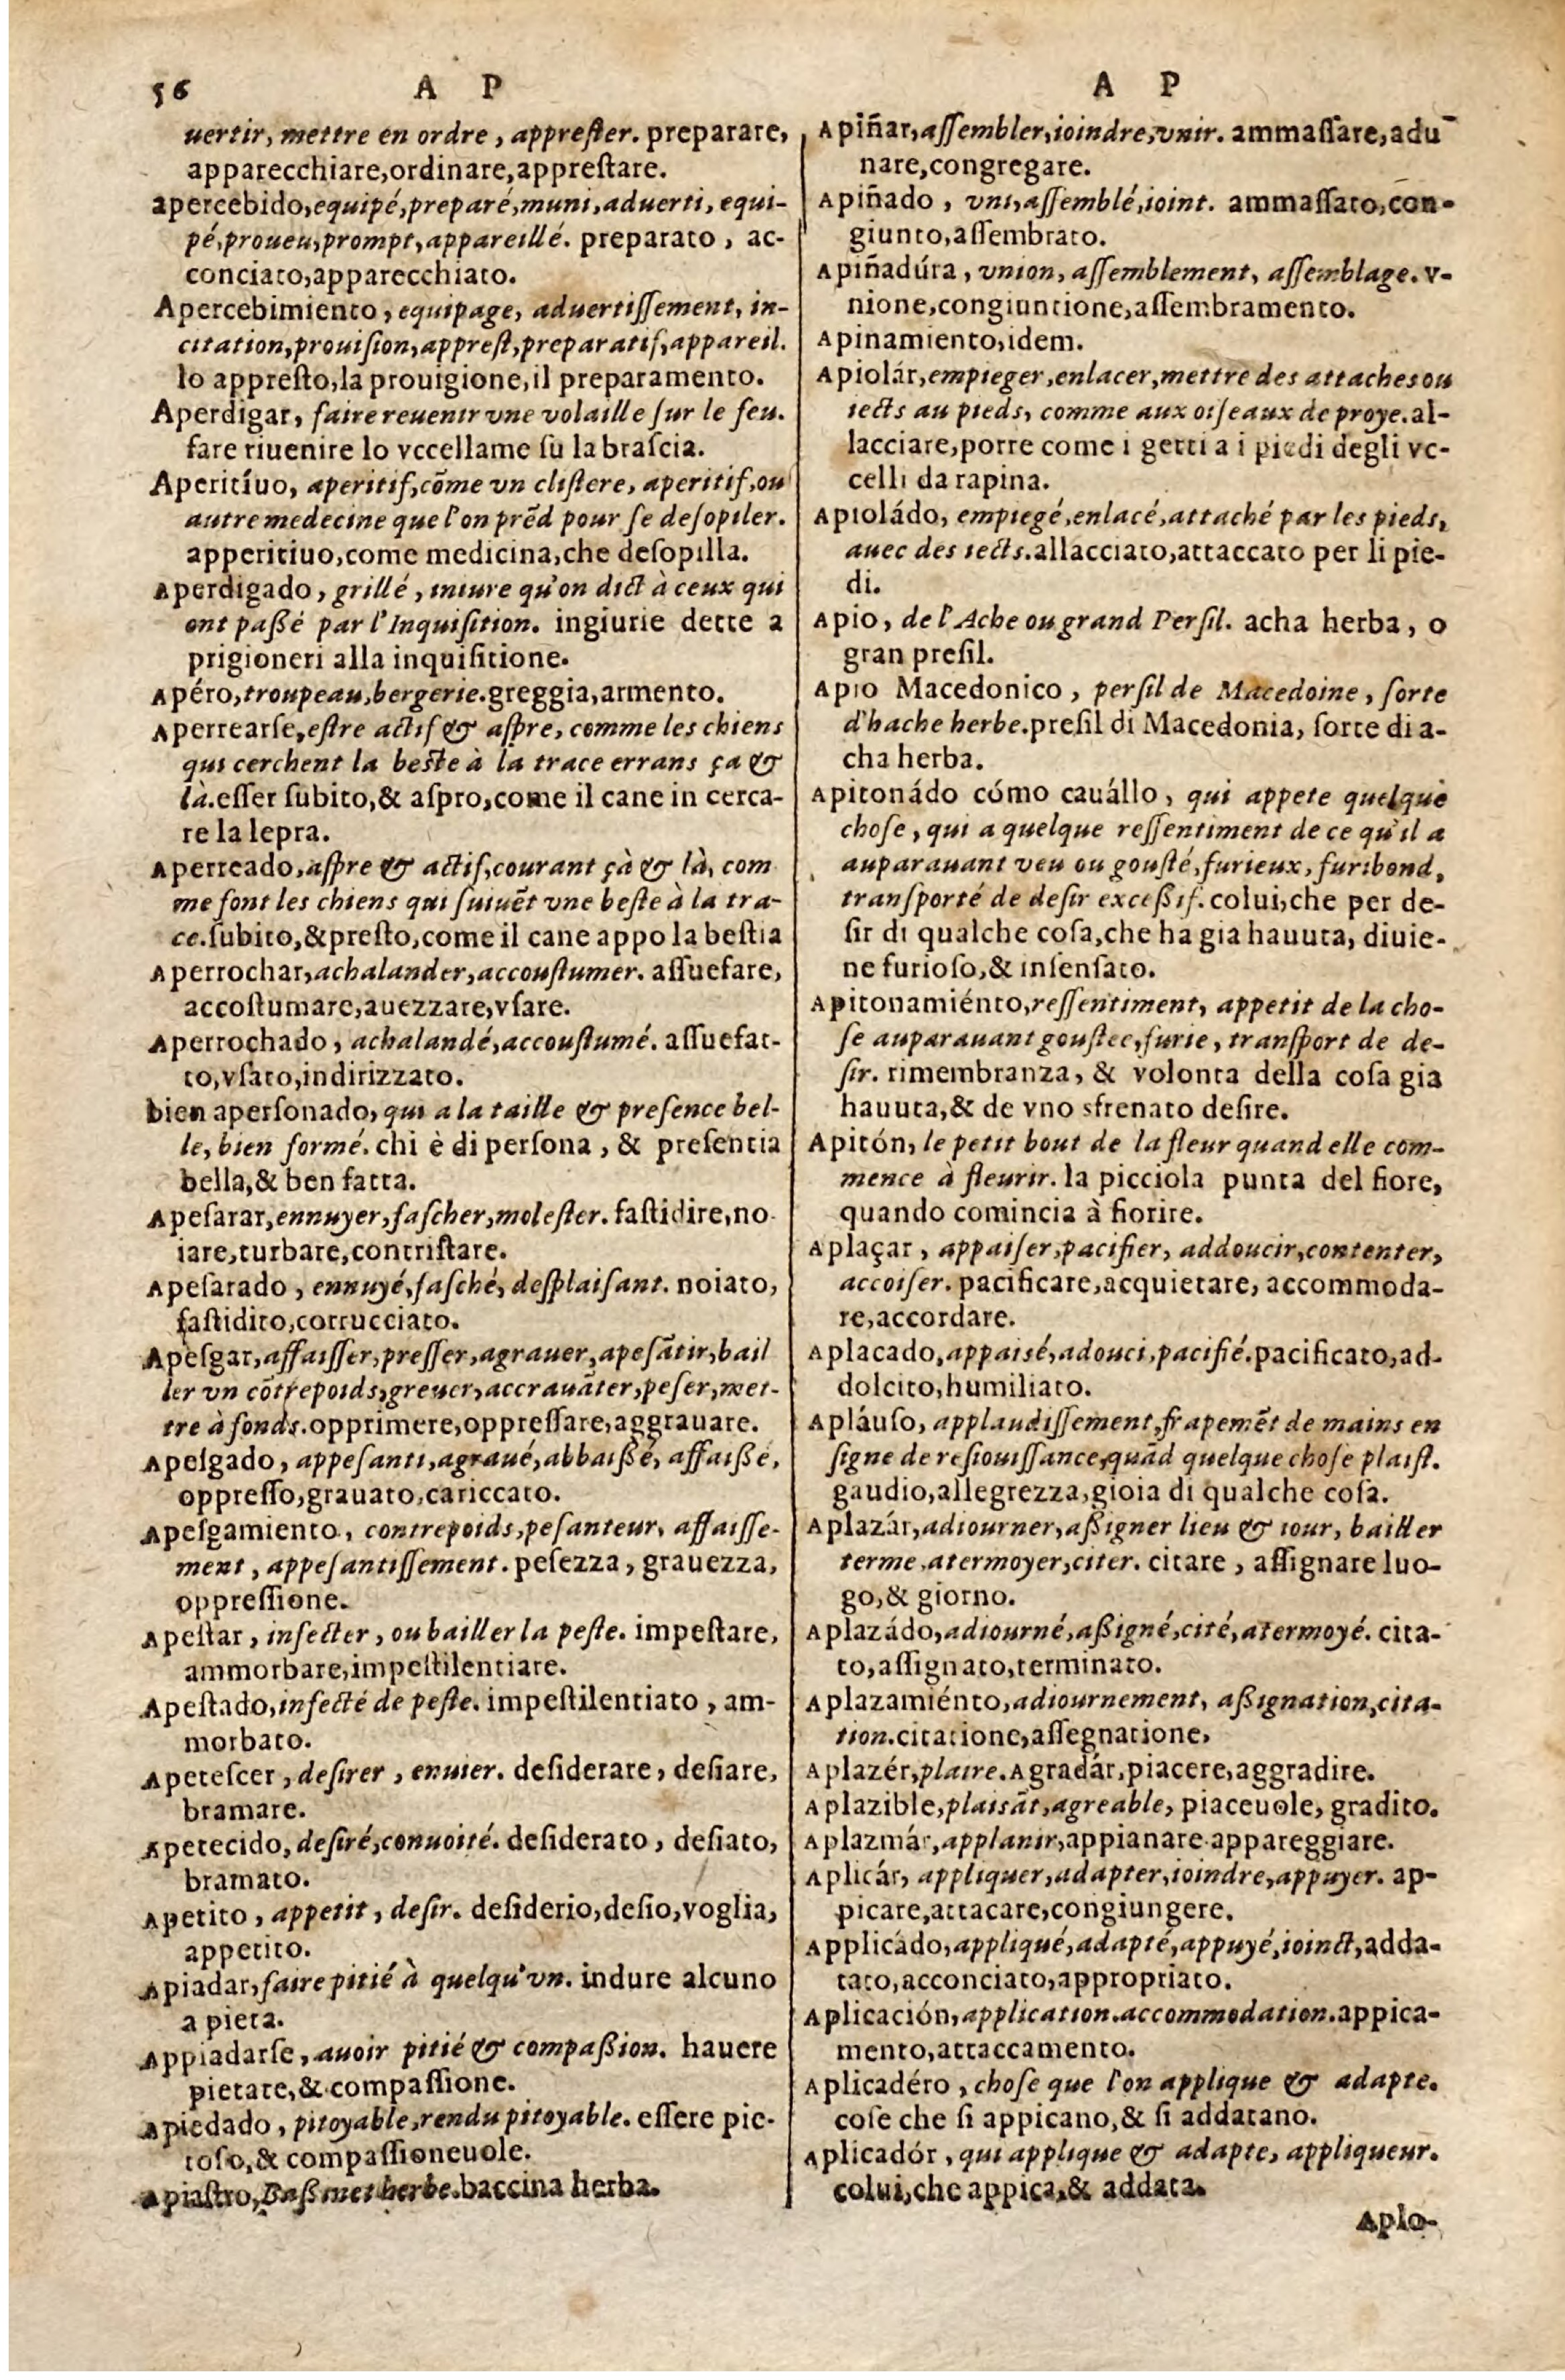 56 A P
uertir, mettre en ordre, appreſter. preparare,
apparecchiare,ordinare,appreſtare.
apercebido,equipé,preparé,muni,aduerti,equi-
pé,proueu,prompt,appareillé. preparato, ac-
conciato,apparecchiato.
Apercebimiento, equipage, aduertiſſement, in-
citation,prouiſion,appreſt,preparatif,appareil.
lo appreſto,la prouigione,il preparamento.
Aperdigar, faire reuenir vne volaille ſur le feu.
fare riuenire lo vccellame ſu la braſcia.
Aperitíuo, aperitif,cõme vn cliſtere, aperitif,ou
autre medecine que l'on prẽd pour ſe deſopiler.
apperitiuo,come medicina,che deſopilla.
Aperdigado, grillé, iniure qu'on dict à ceux qui
ont paßé par l'Inquiſition. ingiurie dette a
prigioneri alla inquiſitione.
Apéro,troupeau,bergerie.greggia,armento.
Aperrearſe,eſtre actif & aſpre, comme les chiens
qui cerchent la beſte à la trace errans ça &
là.eſſer ſubito,& aſpro,come il cane in cerca-
re la lepra.
Aperreado,aſpre & actif,courant çà & là, com
me font les chiens qui ſuiuẽt vne beſte à la tra-
ce.ſubito,&preſto,come il cane appo la beſtia
Aperrochar,achalander,accouſtumer. aſſuefare,
accoſtumare,auezzare,vſare.
Aperrochado, achalandé,accouſtumé. aſſuefat-
to,vſato,indirizzato.
bien aperſonado, qui a la taille & preſence bel-
le, bien formé. chi è di perſona, & preſentia
bella,& ben fatta.
Apeſarar,ennuyer,faſcher,moleſter. faſtidire,no
iare,turbare,contriſtare.
Apeſarado, ennuyé,faſché, deſplaiſant. noiato,
faſtidito,corrucciato.
Apeſgar,affaiſſer,preſſer,agrauer,apeſãtir,bail
ler vn cõtrepoids,greuer,accrauãter,peſer,met-
tre à fonds.opprimere,oppreſſare,aggrauare.
Apeſgado, appeſanti,agraué,abbaißé, affaißé,
oppreſſo,grauato,cariccato.
Apeſgamiento, contrepoids,peſanteur, affaiſſe-
ment, appeſantiſſement. peſezza, grauezza,
oppreſſione.
Apeſtar, infecter, ou bailler la peſte. impeſtare,
ammorbare,impeſtilentiare.
Apeſtado,infecté de peſte. impeſtilentiato, am-
morbato.
Apeteſcer, deſirer, enuier. deſiderare, deſiare,
bramare.
Apetecido, deſiré,conuoité. deſiderato, deſiato,
bramato.
Apetito, appetit, deſir. deſiderio,deſio,voglia,
appetito.
Apiadar,faire pitié à quelqu'vn. indure alcuno
a pieta.
Appiadarſe, auoir pitié & compaßion. hauere
pietate,& compaſſione.
Apiedado, pitoyable,rendu pitoyable. eſſere pie-
toſo,& compaſſioneuole.
Apiaſtro, Baßinet herbe.baccina herba.
A P
Apiñar,aſſembler,ioindre,vnir. ammaſſare,adu
nare,congregare.
Apiñado, vni,aſſemblé,ioint. ammaſſato,con-
giunto,aſſembrato.
Apiñadúra, vnion, aſſemblement, aſſemblage. v-
nione,congiuntione,aſſembramento.
Apinamiento,idem.
Apiolár,empieger,enlacer,mettre des attaches ou
iects au pieds, comme aux oiſeaux de proye.al-
lacciare,porre come i getti a i piedi degli vc-
celli da rapina.
Apioládo, empiegé,enlacé,attaché par les pieds,
auec des iects.allacciato,attaccato per li pie-
di.
Apio, de l'Ache ou grand Perſil. acha herba, o
gran preſil.
Apio Macedonico, perſil de Macedoine, ſorte
d'hache herbe.preſil di Macedonia, ſorte di a-
cha herba.
Apitonádo cómo cauállo, qui appete quelque
choſe, qui a quelque reſſentiment de ce qu'il a
auparauant veu ou gouſté,furieux,furibond,
tranſporté de deſir exceßif. colui,che per de-
ſir di qualche coſa,che ha gia hauuta, diuie-
ne furioſo,& inſenſato.
Apitonamiénto,reſſentiment, appetit de la cho-
ſe auparauant gouſtee,furie, tranſport de de-
ſir. rimembranza, & volonta della coſa gia
hauuta,& de vno sfrenato deſire.
Apitón, le petit bout de la fleur quand elle com-
mence à fleurir. la picciola punta del fiore,
quando comincia à fiorire.
Aplaçar, appaiſer,pacifier, addoucir,contenter,
accoiſer. pacificare,acquietare, accommoda-
re,accordare.
Aplacado,appaisé,adouci,pacifié.pacificato,ad-
dolcito,humiliato.
Apláuſo, applaudiſſement,frapemẽt de mains en
ſigne de reſiouiſſance,quãd quelque choſe plaiſt.
gaudio,allegrezza,gioia di qualche coſa.
Aplazár,adiourner,aßigner lieu & iour, bailler
terme,atermoyer,citer. citare, aſſignare luo-
go,& giorno.
Aplazádo,adiourné,aßigné,cité,atermoyé. cita-
to,aſſignato,terminato.
Aplazamiénto,adiournement, aßignation,cita-
tion.citatione,aſſegnatione,
Aplazér,plaire.Agradár,piacere,aggradire.
Aplazible,plaisãt,agreable, piaceuole, gradito.
Aplazmár,applanir,appianare appareggiare.
Aplicár, appliquer,adapter,ioindre,appuyer. ap-
picare,attacare,congiungere.
Applicádo,appliqué,adapté,appuyé,ioinct,adda-
tato,acconciato,appropriato.
Aplicación,application.accommodation.appica-
mento,attaccamento.
Aplicadéro, choſe que l'on applique & adapte.
coſe che ſi appicano,& ſi addatano.
Aplicadór, qui applique & adapte, appliqueur.
colui,che appica,& addata.
Aplo-